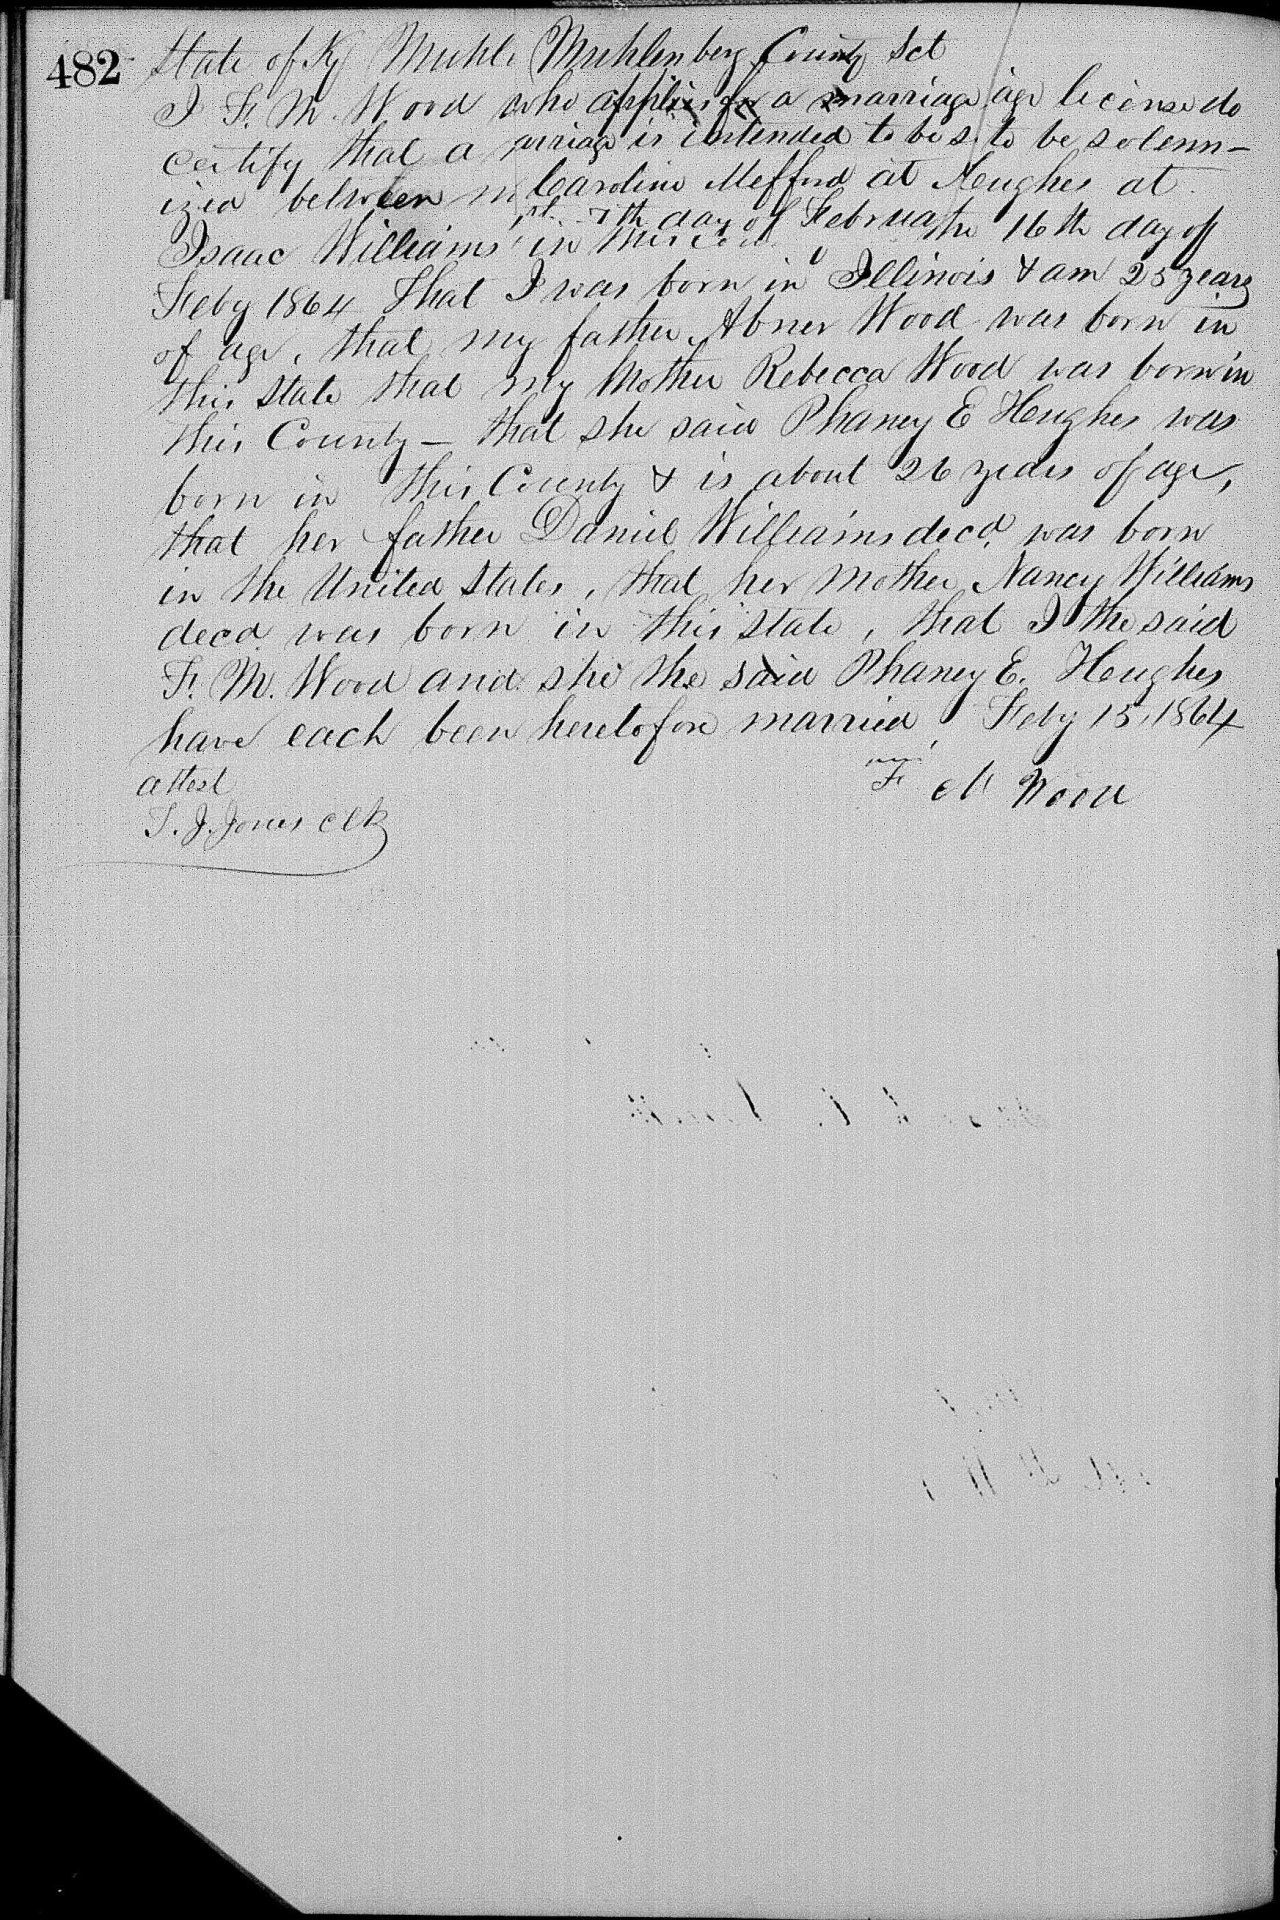 482
State of Ky Muhl (Muhlenberg County Sct
I F. M. Wood who applies for a marriage age license do
certify that a arriage is intended to be s to be solemn-
ized between m Caroline Mefford at Hughes at
Isaac Williams in this 7th day of Februa the 16th day of
Feby 1864 That I was born in Illinois & am 25 years
of age, that my father Abner Wood was born in
this State that my Mother Rebecca Wood was born in
this County — that she said Phaney E Hughes was
born in this County & is about 26 years of age,
that her father Daniel Williams decd. was born
in the United States, that her mother Nancy Williams
decd was born in this state, that I the said
F. M. Wood and she the said Phaney E. Hughes
have each been heretofore married, Feby 15, 1864
attest
F M Wood
T. J. Jones Clk